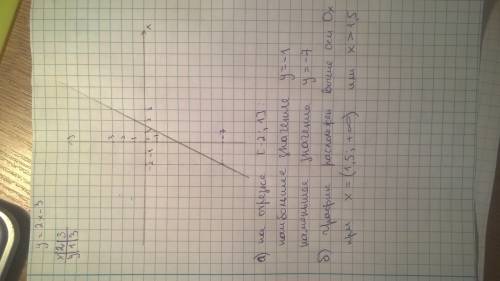 y = 2x - 3
x | 2 | 3
y | 1 | 3
а) на отрезке [-2; 1]:
наибольшее значение y = -1
наименьшее значение y = -7
б) график расположен выше оси Ox
при x = (1,5; +∞) или x > 1,5